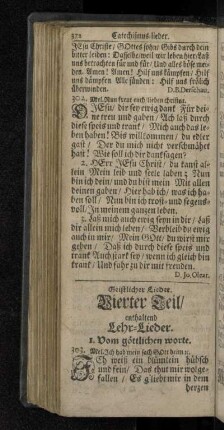 372 Catechismus-lieder.
JEsu Christe / GOttes sohn / Gibs durch dein
bitter leiden: Daß selbe weil wir leben hier / Laß
uns betrachten für und für / Und alles böse mey-
den. Amen! Amen! Hilf uns kämpfen / Hilf
uns dämpfen Alle sünden: Hilf uns frölich
überwinden. D.B.Derschau.
302. Mel. Nun freut euch lieben Christen.
O JEsu / dir sey ewig danck Für dei-
ne treu und gaben / Ach laß durch
diese speis und tranck / Mich auch das le-
ben haben! Bis willkommen / du edler
gast / Der du mich nicht verschmähet
hast! Wie soll ich dir dancksagen?
2. HErr JEsu Christ / du kanst al-
lein Mein leib und seele laben: Nun
bin ich dein / und du bist mein Mit allen
deinen gaben / Hier hab ich / was ich ha-
ben soll / Nun bin ich trost- und segens-
voll / In meinem gantzen leben.
3. Laß mich auch ewig seyn in dir / Laß
dir allein mich leben / Verbleib du ewig
auch in mir / Mein GOtt / du wirst mir
geben / Daß ich durch diese speis und
tranck Auch starck sey / wenn ich gleich bin
kranck / Und fahr zu dir mit freuden.
D. Jo. Olear.
Geistlicher Lieder
Vierter Teil /
enthaltend
Lehr-Lieder.
1. Vom göttlichen worte.
303. Mel. Ich hab mein sach GOtt heim ic.
Ich weiß ein blümlein hübsch
und fein / Das thut mir wolge-
fallen / Es geliebt mir in dem
hertzen